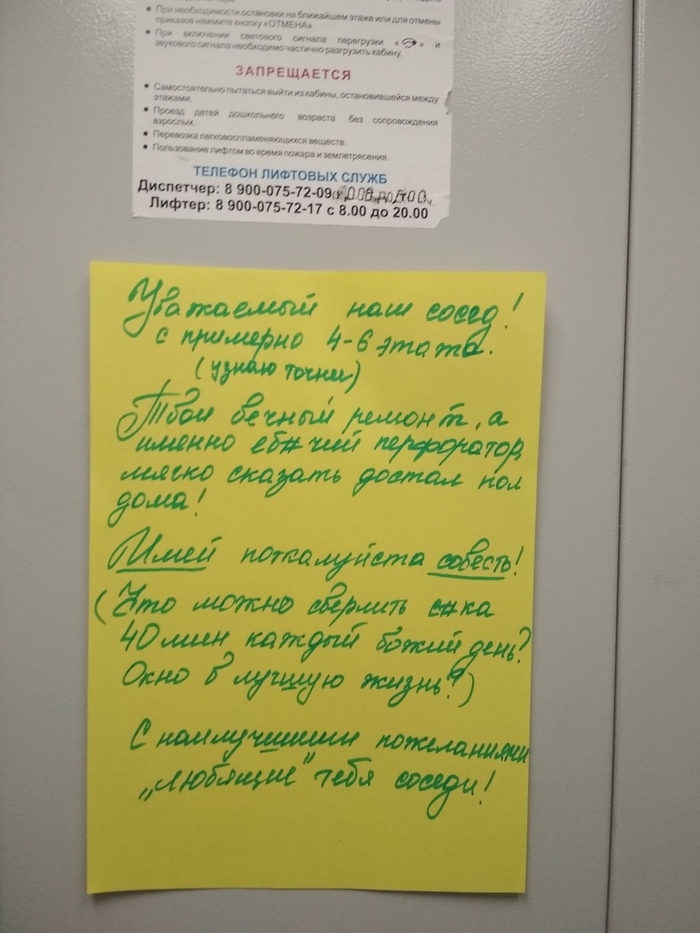 ● При необходимости остановки на ближайшем этаже или для отмены
приказов нажмите кнопку «ОТМЕНА»
● При включении светового сигнала перегрузки « » и
звукового сигнала необходимо частично разгрузить кабину.
ЗАПРЕЩАЕТСЯ
● Самостоятельно пытаться выйти из кабины, остановившейся между
этажами.
● Проезд детей дошкольного возраста без сопровождения
взрослых.
● Перевозка легковоспламеняющихся веществ.
● Пользование лифтом во время пожара и землетрясения.
ТЕЛЕФОН ЛИФТОВЫХ СЛУЖБ
Диспетчер: 8 900-075-72-09
Лифтер: 8 900-075-72-17 с 8.00 до 20.00
Уважаемый наш сосед!
с примерно 4-6 этажа.
(узнаю точнее)
Твой вечный ремонт, а
именно еб#чий перфоратор,
мягко сказать достал пол
дома!
Имей пожалуйста совесть!
(Что можно сверлить с#ка
40 мин каждый божий день?
Окно в лучшую жизнь?)
С наилучшими пожеланиями
„любящие" тебя соседи!